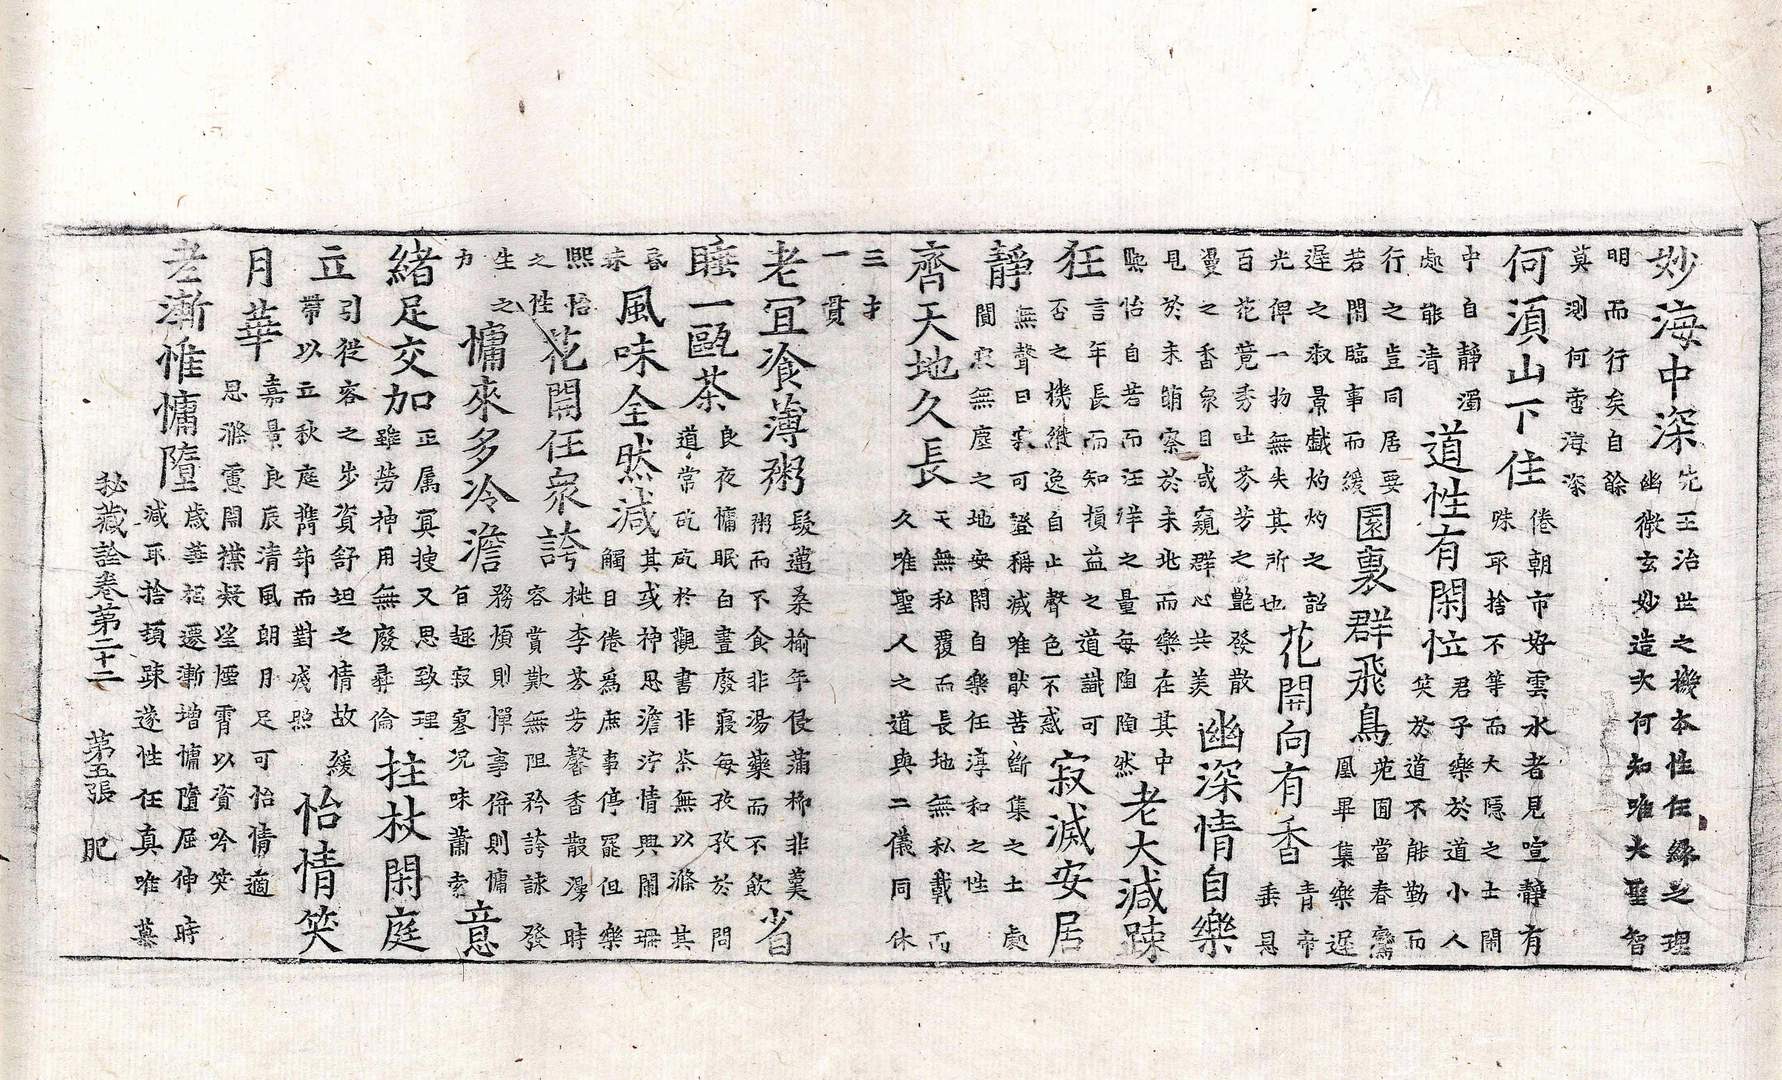 妙海中深先王治世之機本性任緣之理
幽微玄妙造次何知唯大聖智
明而行矣自餘
莫測何啻海深
何須山下住倦朝市好雲水者見喧靜有
殊取捨不等而大隱之士鬧
中自靜濁
處能清
道性有閑忙君子樂於道小人
笑於道不能勤而
行之豈同居要
若閑臨事而緩
園裏群飛鳥苑囿當春鸞
凰畢集樂遲
遲之淑景戲灼灼之韶
光俾一物無失其所也
花開向有香青帝
垂恩
百花竟秀吐芬芳之艷發散
漫之香衆目咸窺群心共羡
幽深情自樂
見於未萌察於未兆而樂在其中
熙怡自若而汪洋之量每陶陶然
老大減踈
狂言年長而知損益之道識可
否之機纔逸自止聲色不惑
寂滅安居
靜無聲曰寂可證稱滅唯默苦斷集之士處
閴寂無塵之地安閑自樂任淳和之性
齊天地久長天無私覆而長地無私載而
久唯聖人之道與二儀同休
三才
一貫
老宜飡薄粥髮邁桑榆年侵蒲柳非羹
粥而不食非湯藥而不飲
省
睡一甌茶良夜慵眠白晝廢寢每孜孜於問
道常矻矻於觀書非茶無以滌其
昏
味
風味全然減其或神思澹泞情興闌珊
觸目倦爲庶事停罷但樂
熙怡
之性
花開任衆誇桃李芬芳馨香散漫時
容賞歎無阻矜誇詠發
生之
力
慵來多冷澹務煩則憚事倂則慵
旨趣寂寥况味蕭索
意
緒足交加正属冥搜又思致理
雖勞神用無廢彝倫
拄杖閑庭
立引從容之步資舒坦之情故緩
帶以立秋庭攜筇而對殘照
怡情笑
月華嘉景良辰清風朗月足可怡情適
思滌慮開襟凝望煙霄以資吟笑
老漸惟慵墮歲華梠遷漸增慵墮屈伸時
減取捨頓踈遂性任真唯慕
秘藏詮卷第二十二 第五張 肥